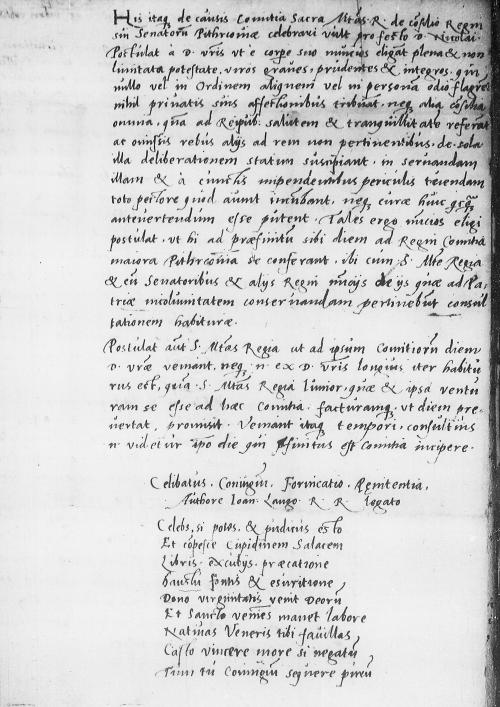 His itaq de causis Comitia Sacra Mtas R. de cōsilio Regni
sui Senatorū Pithrcoviæ celebrari vult pro festo D. Nicolai
Postulat à D. vris vt è corpe suo nuncios eligāt plena & non
limitata potestate, viros graves, prudētes & integros, qui
nullo vel in Ordinem aliquem vel in personā odio flagrēt
nihil privatis suis affectionibus tribuāt, neq alia cōsilia
omnia, quā ad Reipub: salutem & tranquillitatē referāt
ac omissis rebus alijs ad rem non pertinentibus, de sola
illa deliberationem statum suscipiant, in servandam
illam & à cunctis impendentibus periculis tuendam
toto pectore quod aiunt incūbant, neq curæ huic
antevertendum esse putent. Tales ergo nūcios eligi
postulat, vt hi ad præfinitū sibi diem ad Regni Comitia
maiora Pithrcoviā se conferant, ibi cum S. Mte Regia
& eiū Senatoribus & alijs Regni nūcijs de ijs quæ ad Pa,
triæ incolumitatem conservandam pertinebūt consul
tationem habituræ.
Postulat aūt S. Mtas Regia ut ad ipsum Comitiorū diem
D. vræ veniant, neq. n. ex D. vris longius iter habitu
rus est, quā S. Mtas Regia Iunior, quæ & ipsa ventu
ram se esse ad hæc Comitia, facturamq, vt diem præ,
vertat, promisit. Veniant itaq tempori, consultius
n. videtur ipo die qui p̄finitus est Comitia incipere.
Celibatus, Coniugiū, Fornicatio, Pœnitentia,
Authore Ioan. Lango R. R. Legato
Celebs, si potes, & pudicus esto
Et cōpesce Cupidinem Salacem
Libris excubijs, præcatione
Haustu fontis & esuritione,
Dono virginitatis venit Deorū
Et Sancto veniēs manet labore
Nativas Veneris tibi favillas
Casto vincere more si negatū
Tum tu Coniugiū sequere pium